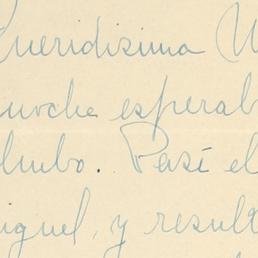 Queridísima
noche esperab
lumbo. Pasé el
iguel, y result